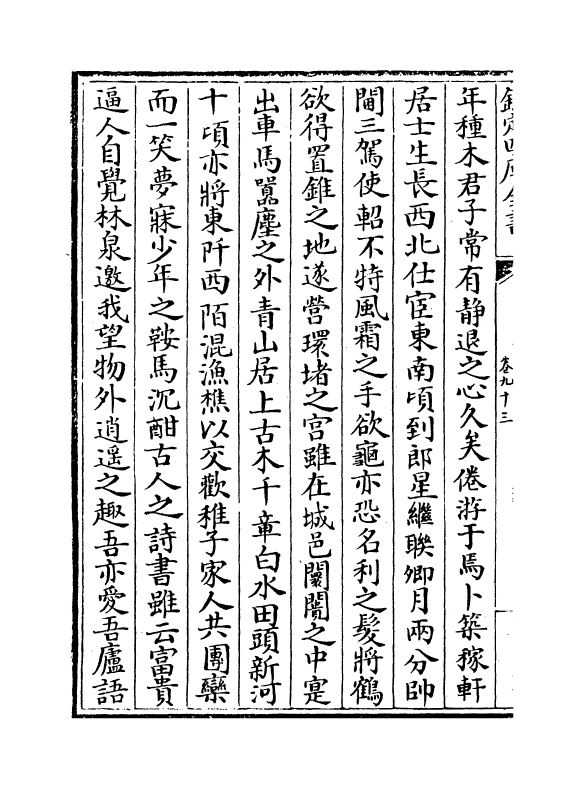 欽定四庫全書
卷九十三
年種木君子常有静退之心久矣倦游于焉卜築稼軒
居士生長西北仕宦東南頃到郎星繼聯卿月兩分帥
閫三駕使軺不特風霜之手欲龜亦恐名利之髮將鶴
欲得置錐之地遂營環堵之宫雖在城邑闤闠之中寔
出車馬囂塵之外青山居上古木千章白水田頭新河
十頃亦將東阡西陌混漁樵以交歡稚子家人共團欒
而一笑夢寐少年之鞍馬沉酣古人之詩書雖云富貴
逼人自覺林泉邀我望物外逍遥之趣吾亦愛吾廬語